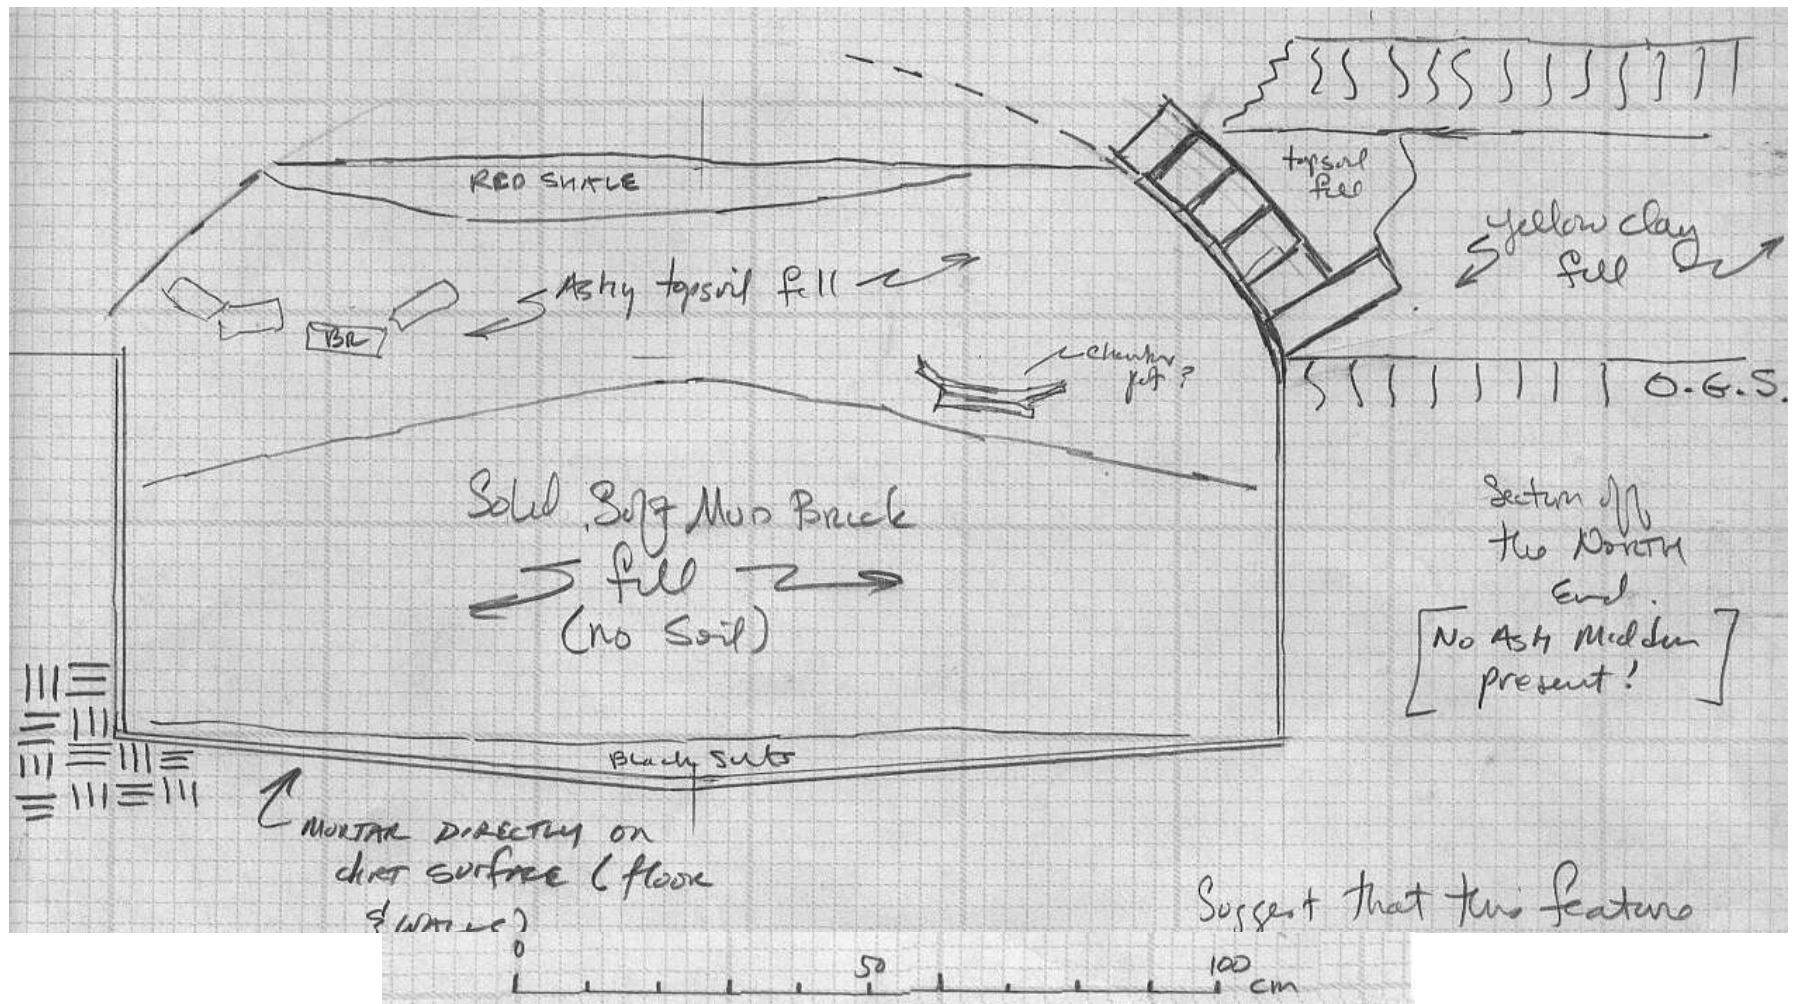 RED SHALE
topsoil
fill
yellow clay
fill
Ashy topsoil fill
BR
chamber
pot?
O.G.S.
Solid, Soft Mud Brick
fill
(no Soil)
Section off
the NORTH
End.
No Ash Midden
present!
Black Silts
MORTAR DIRECTLY on
dirt surface (floor
& WALLS)
Suggest that this feature
0
50
100
cm